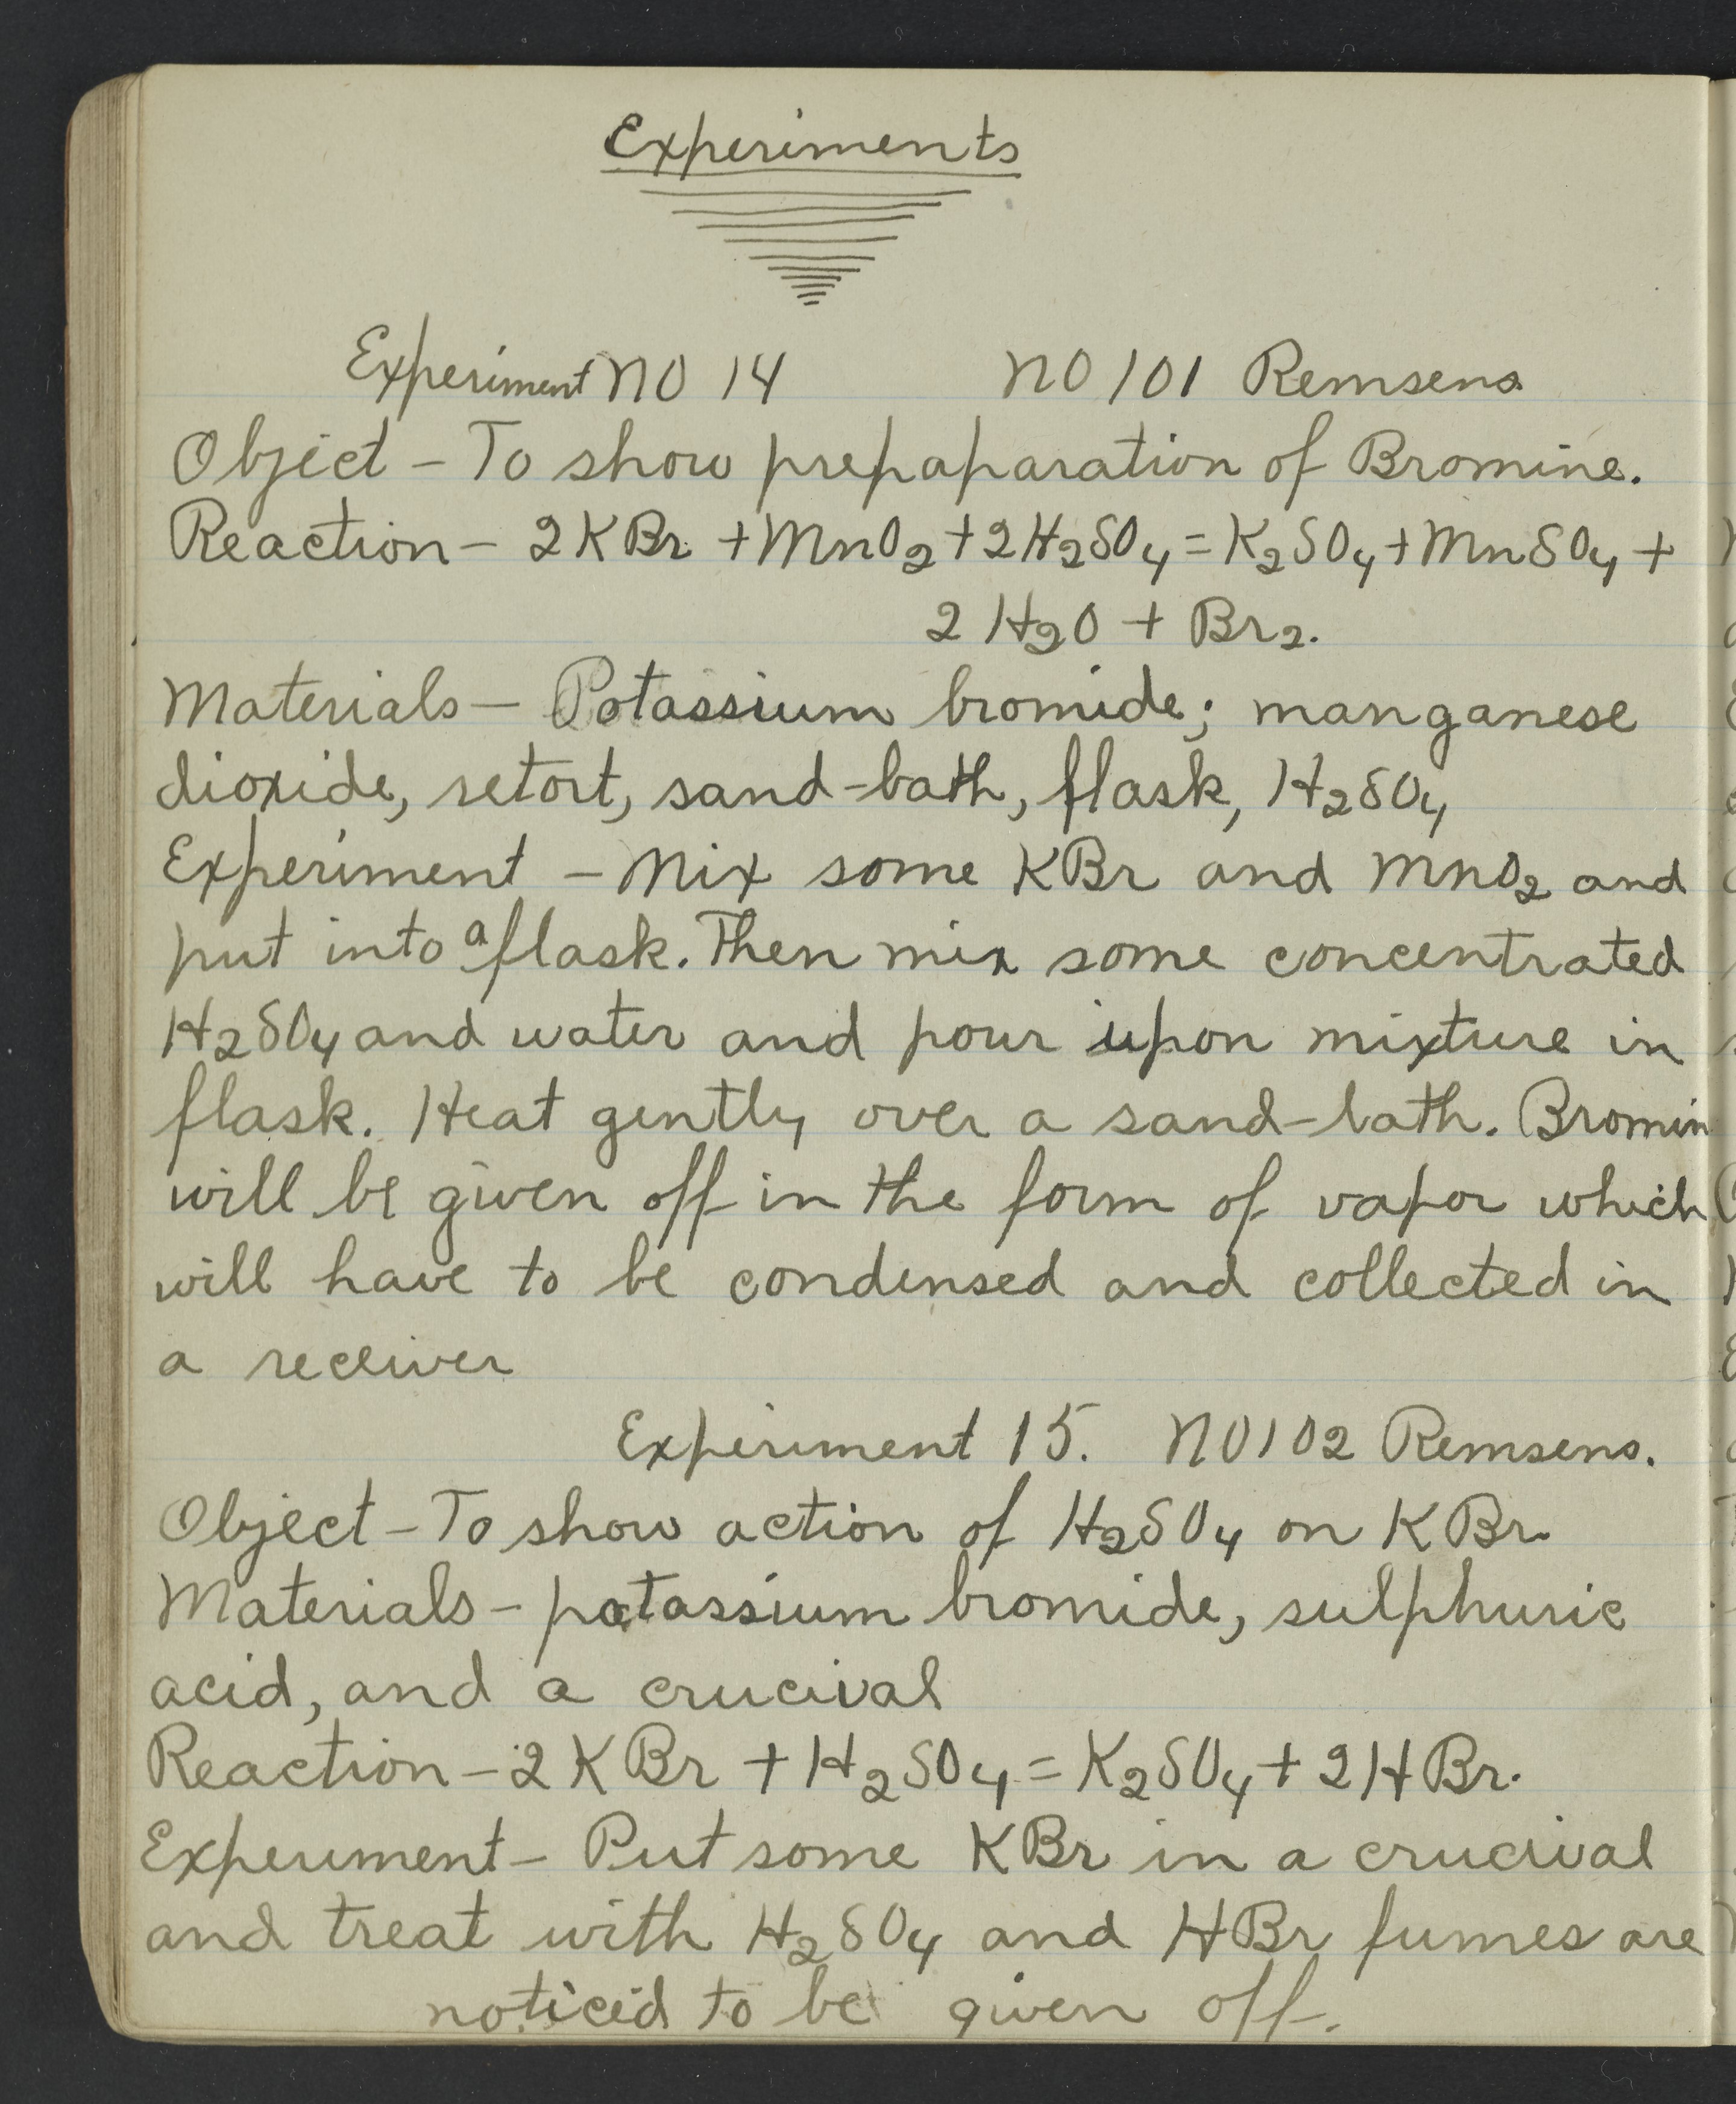 Experiments
Experiment NO 14 NO 101 Remsens
Object - To show prepaparation of Bromine.
Reaction - 2KBr + MnO₂ + 2H₂SO₄ = K₂SO₄ + MnSO₄ +
2 H₂O + Br₂.
Materials - Potassium bromide; manganese
dioxide, retort, sand-bath, flask, H₂SO₄
Experiment - Mix some KBr and MnO₂ and
put into a flask. Then mix some concentrated
H₂SO₄ and water and pour upon mixture in
flask. Heat gently over a sand-bath. Bromin
will be given off in the form of vapor which
will have to be condensed and collected in
a receiver
Experiment 15. NO 102 Remsens.
Object - To show action of H₂SO₄ on KBr.
Materials - potassium bromide, sulphuric
acid, and a crucival
Reaction - 2KBr + H₂SO₄ = K₂SO₄ + 2HBr.
Experiment - Put some KBr in a crucival
and treat with H₂SO₄ and HBr fumes are
noticed to be given off.